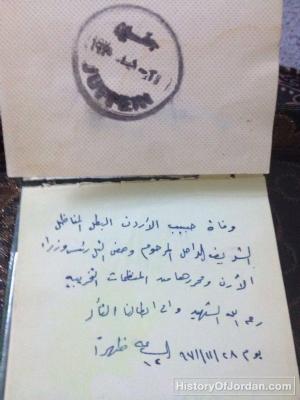 جفين
JUFFEIN
وفاة حبيب الأردن البطل المناضل
الشريف الراحل المرحوم وصفي التل رئيس وزراء
الأردن ومحررها من المنظمات التخريبية
رحم الله الشهيد الثأر
يوم ٢٨/١١/٩٧١ الساعة ١٢ ظهراً
HistoryOfJordan.com